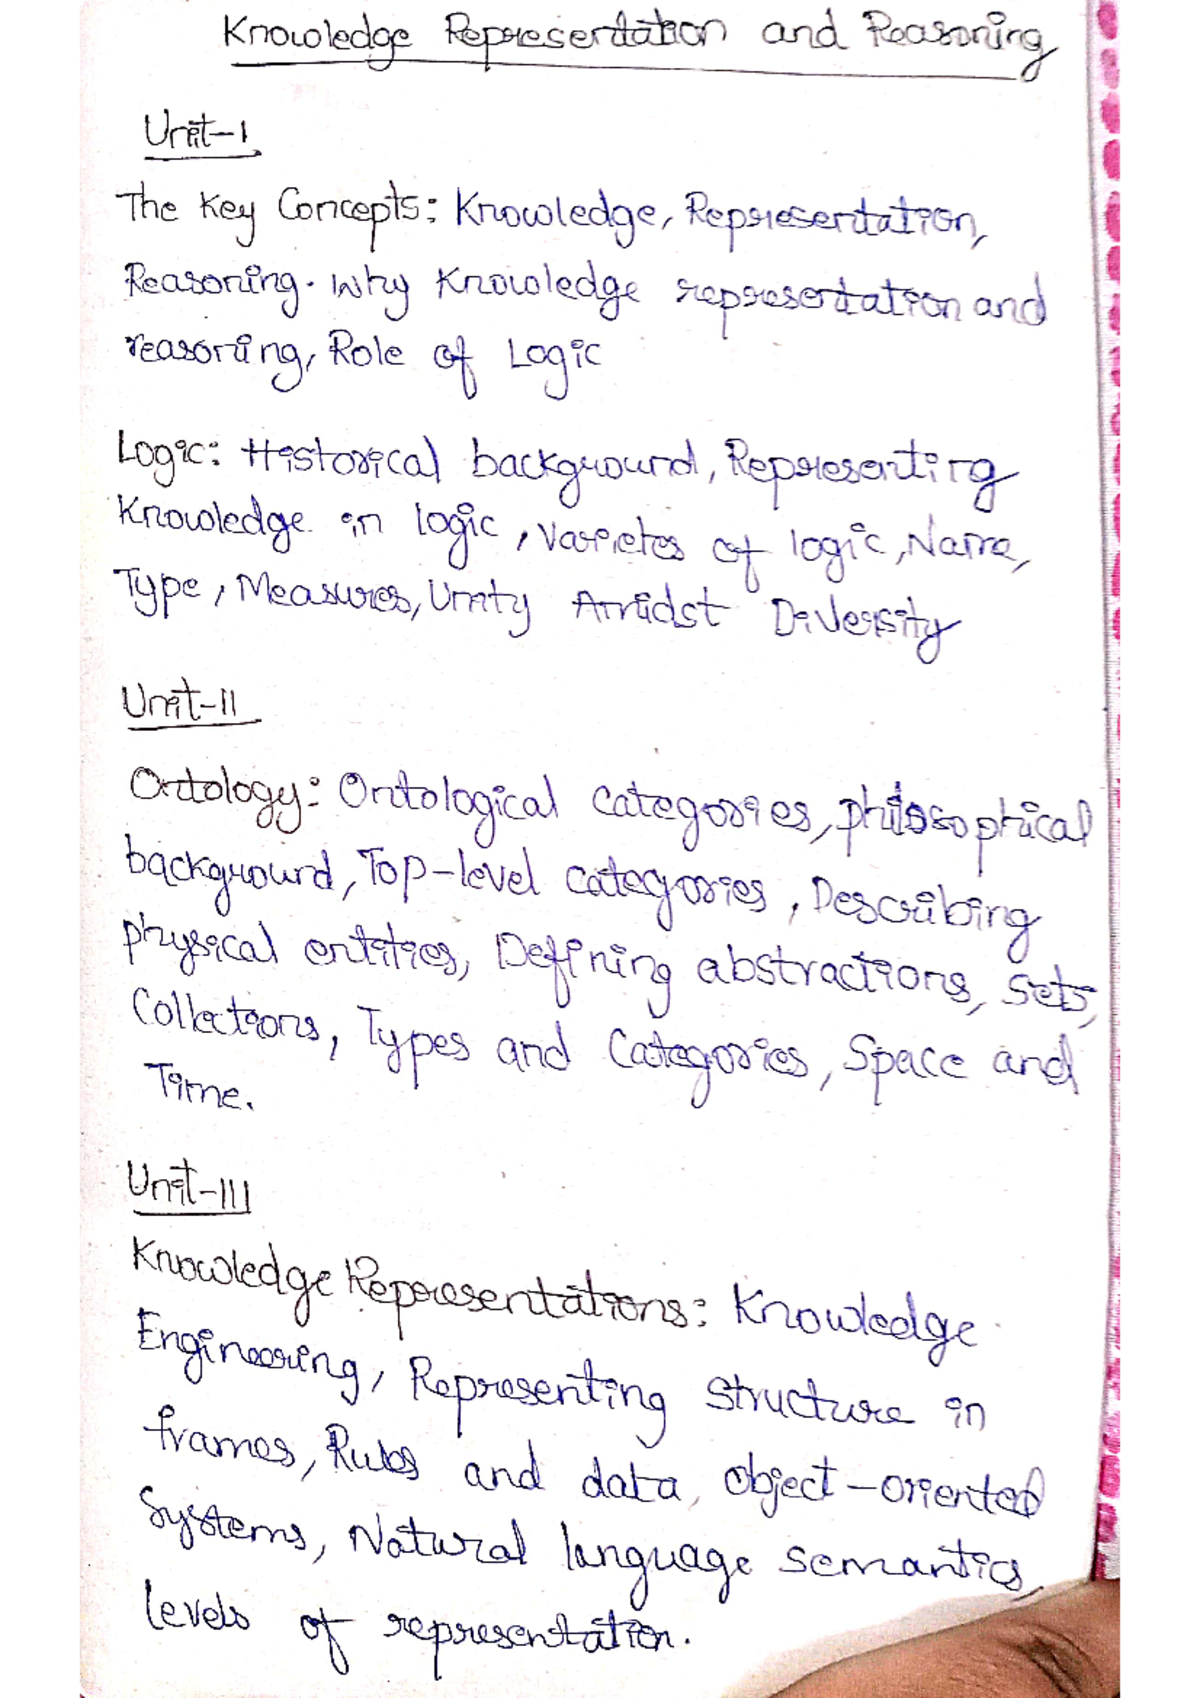 Knowledge Representation and Reasoning
Unit-I
The Key Concepts: Knowledge, Representation,
Reasoning. Why Knowledge representation and
reasoning, Role of Logic
Logic: Historical background, Representing
Knowledge in logic, Varieties of logic, Name,
Type, Measures, Unity Amidst Diversity
Unit-II
Ontology: Ontological categories, philosophical
background, Top-level categories, Describing
physical entities, Defining abstractions, Sets,
Collections, Types and Categories, Space and
Time.
Unit-III
Knowledge Representations: Knowledge
Engineering, Representing structure in
frames, Rules and data, object-oriented
Systems, Natural language semantics,
levels of representation.